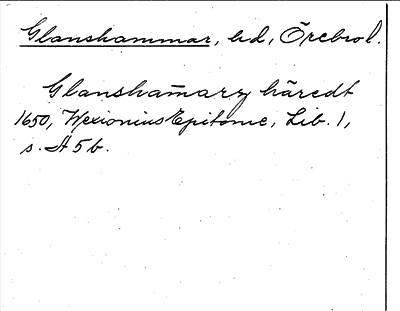 Glanshammar, hd, Örebro l.
Glansham̄arz häredt
1650, Wexionius Epitome, Lib. 1,
s. A 5 b.